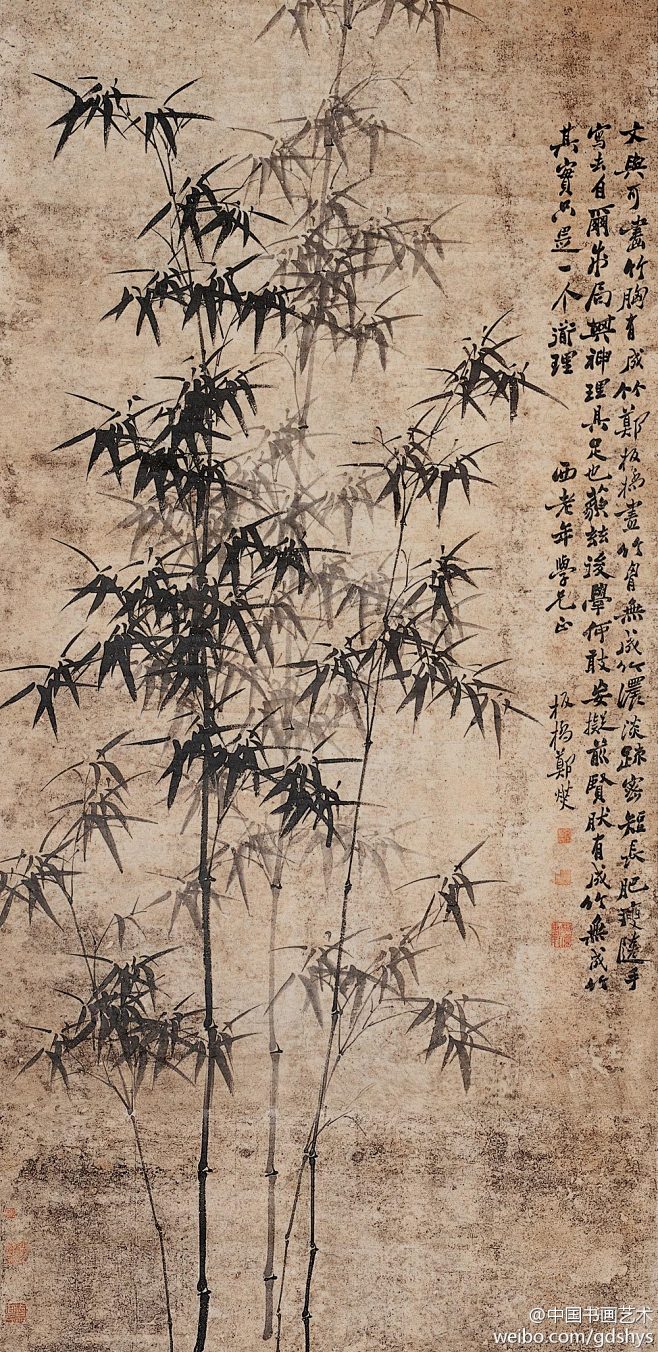 文與可畫竹胸有成竹鄭板橋畫竹胸無成竹濃淡疎密短長肥瘦隨手
寫去自爾成局其神理具足也藐茲後學何敢妄擬前賢然有成竹無成竹
其實只是一个道理
西老年學兄正
板橋鄭燮
@中国书画艺术
weibo.com/gdshys